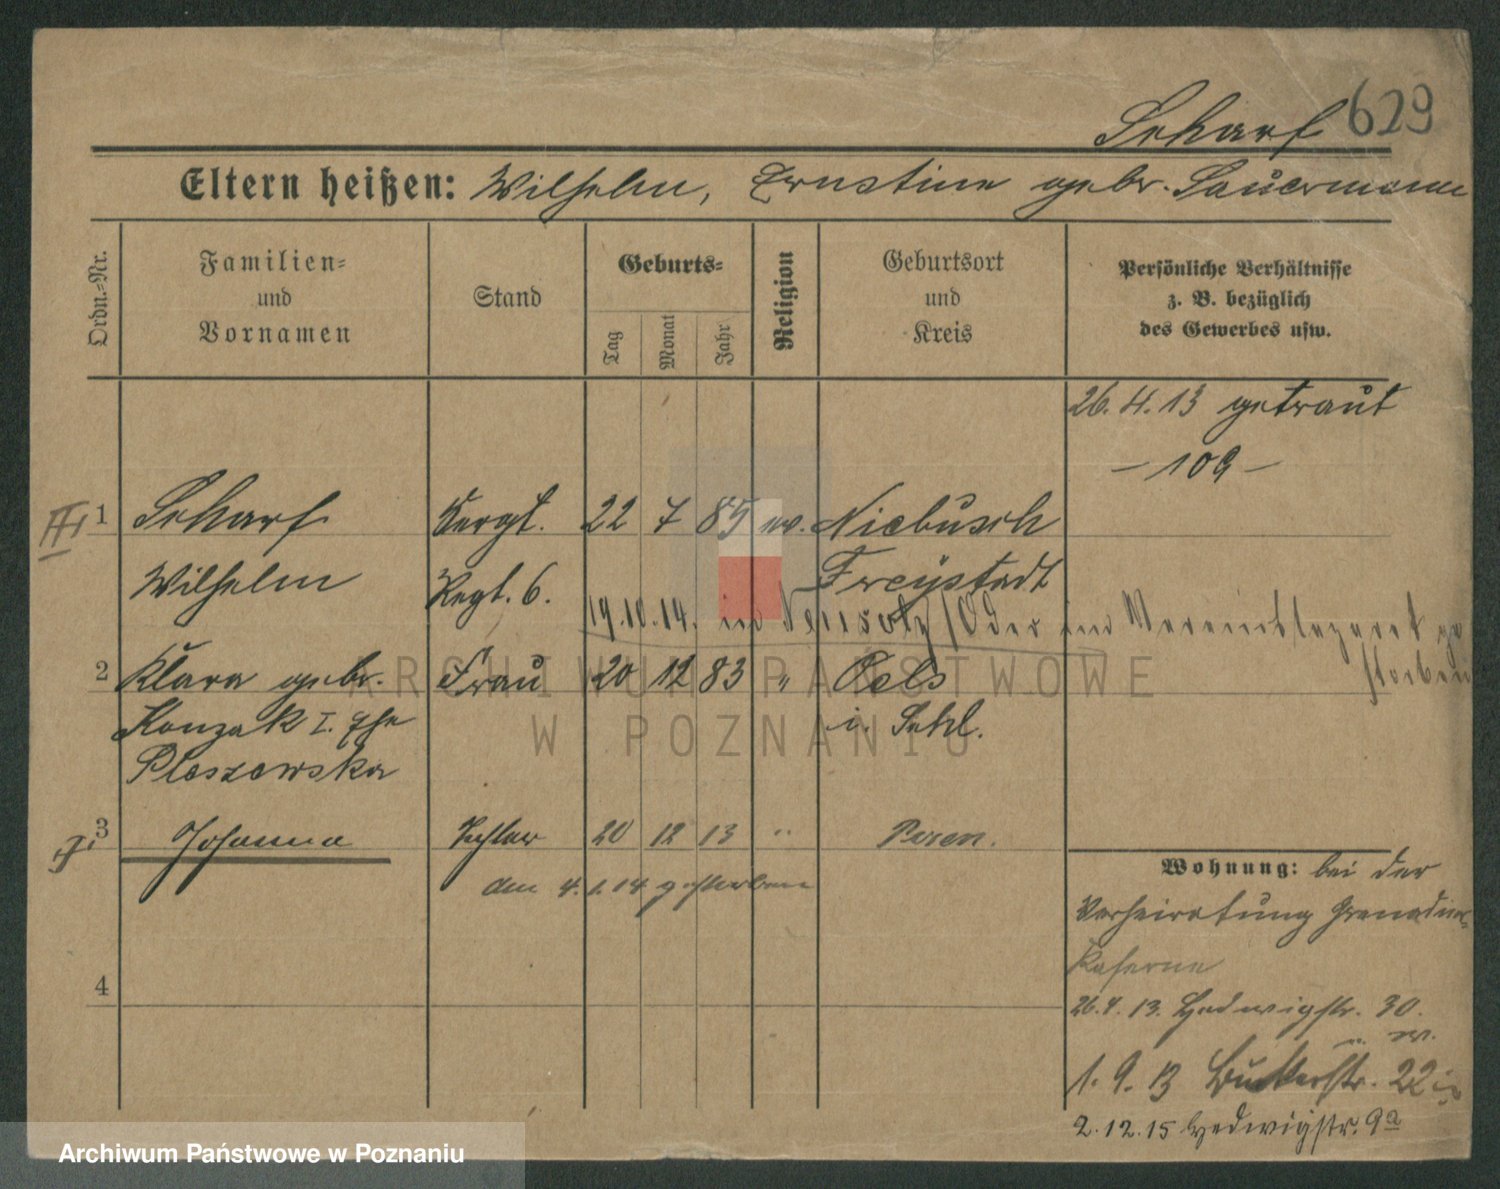 629
Scharf
Eltern heißen: Wilhelm, Ernstine gebr. Sauermann
Ordn.-Nr.
Familien- und Vornamen
Stand
Geburts-
Tag
Monat
Jahr
Religion
Geburtsort und Kreis
Persönliche Verhältnisse
z. B. bezüglich
des Gewerbes usw.
26. 4. 13 getraut
- 109 -
1 Scharf Sergt. 22 7 85 ev. Niebusch
Wilhelm Regt. 6. Freystadt
19.10.14. in Neusalz/Oder im Vereinslazaret ge
storben
2 Klara gebr. Frau 20 12 83 " Oels
Konzak I. Ehe i. Schl.
Pleszewska
3 Johanna Tochter 20 12 13 " Posen.
den 4. 1. 14 gestorben
4
Wohnung: bei der
Verheiratung Grenadier-
Kaserne
26. 4. 13. Hedwigstr. 30.
1. 9. 13 Bukerstr. 22
2. 12. 15 Hedwigstr. 9a
ARCHIWUM PAŃSTWOWE
W POZNANIU
Archiwum Państwowe w Poznaniu